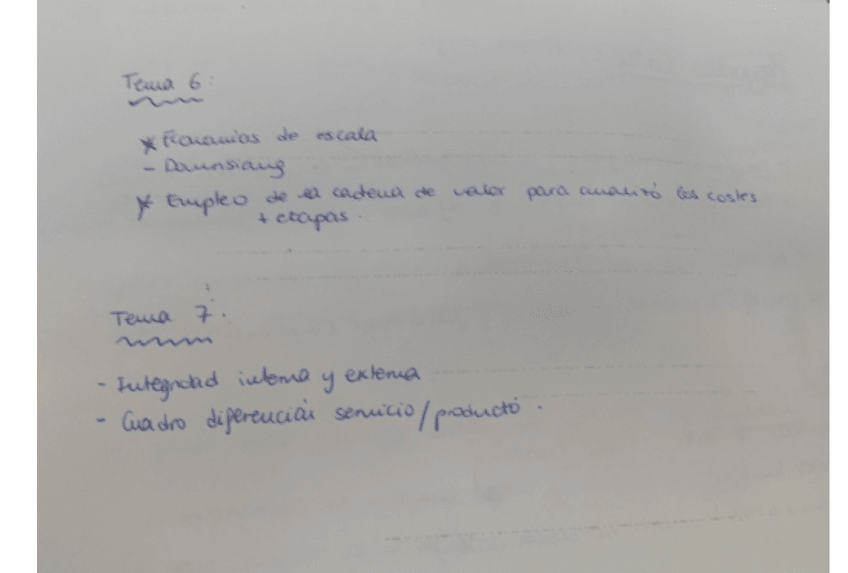 Tema 6:
* Economias de escala
- Downsizing
* Empleo de la cadena de valor para analizó los costes
+ etapas.
Tema 7:
- Integridad interna y externa
- Cuadro diferenciar servicio/producto.